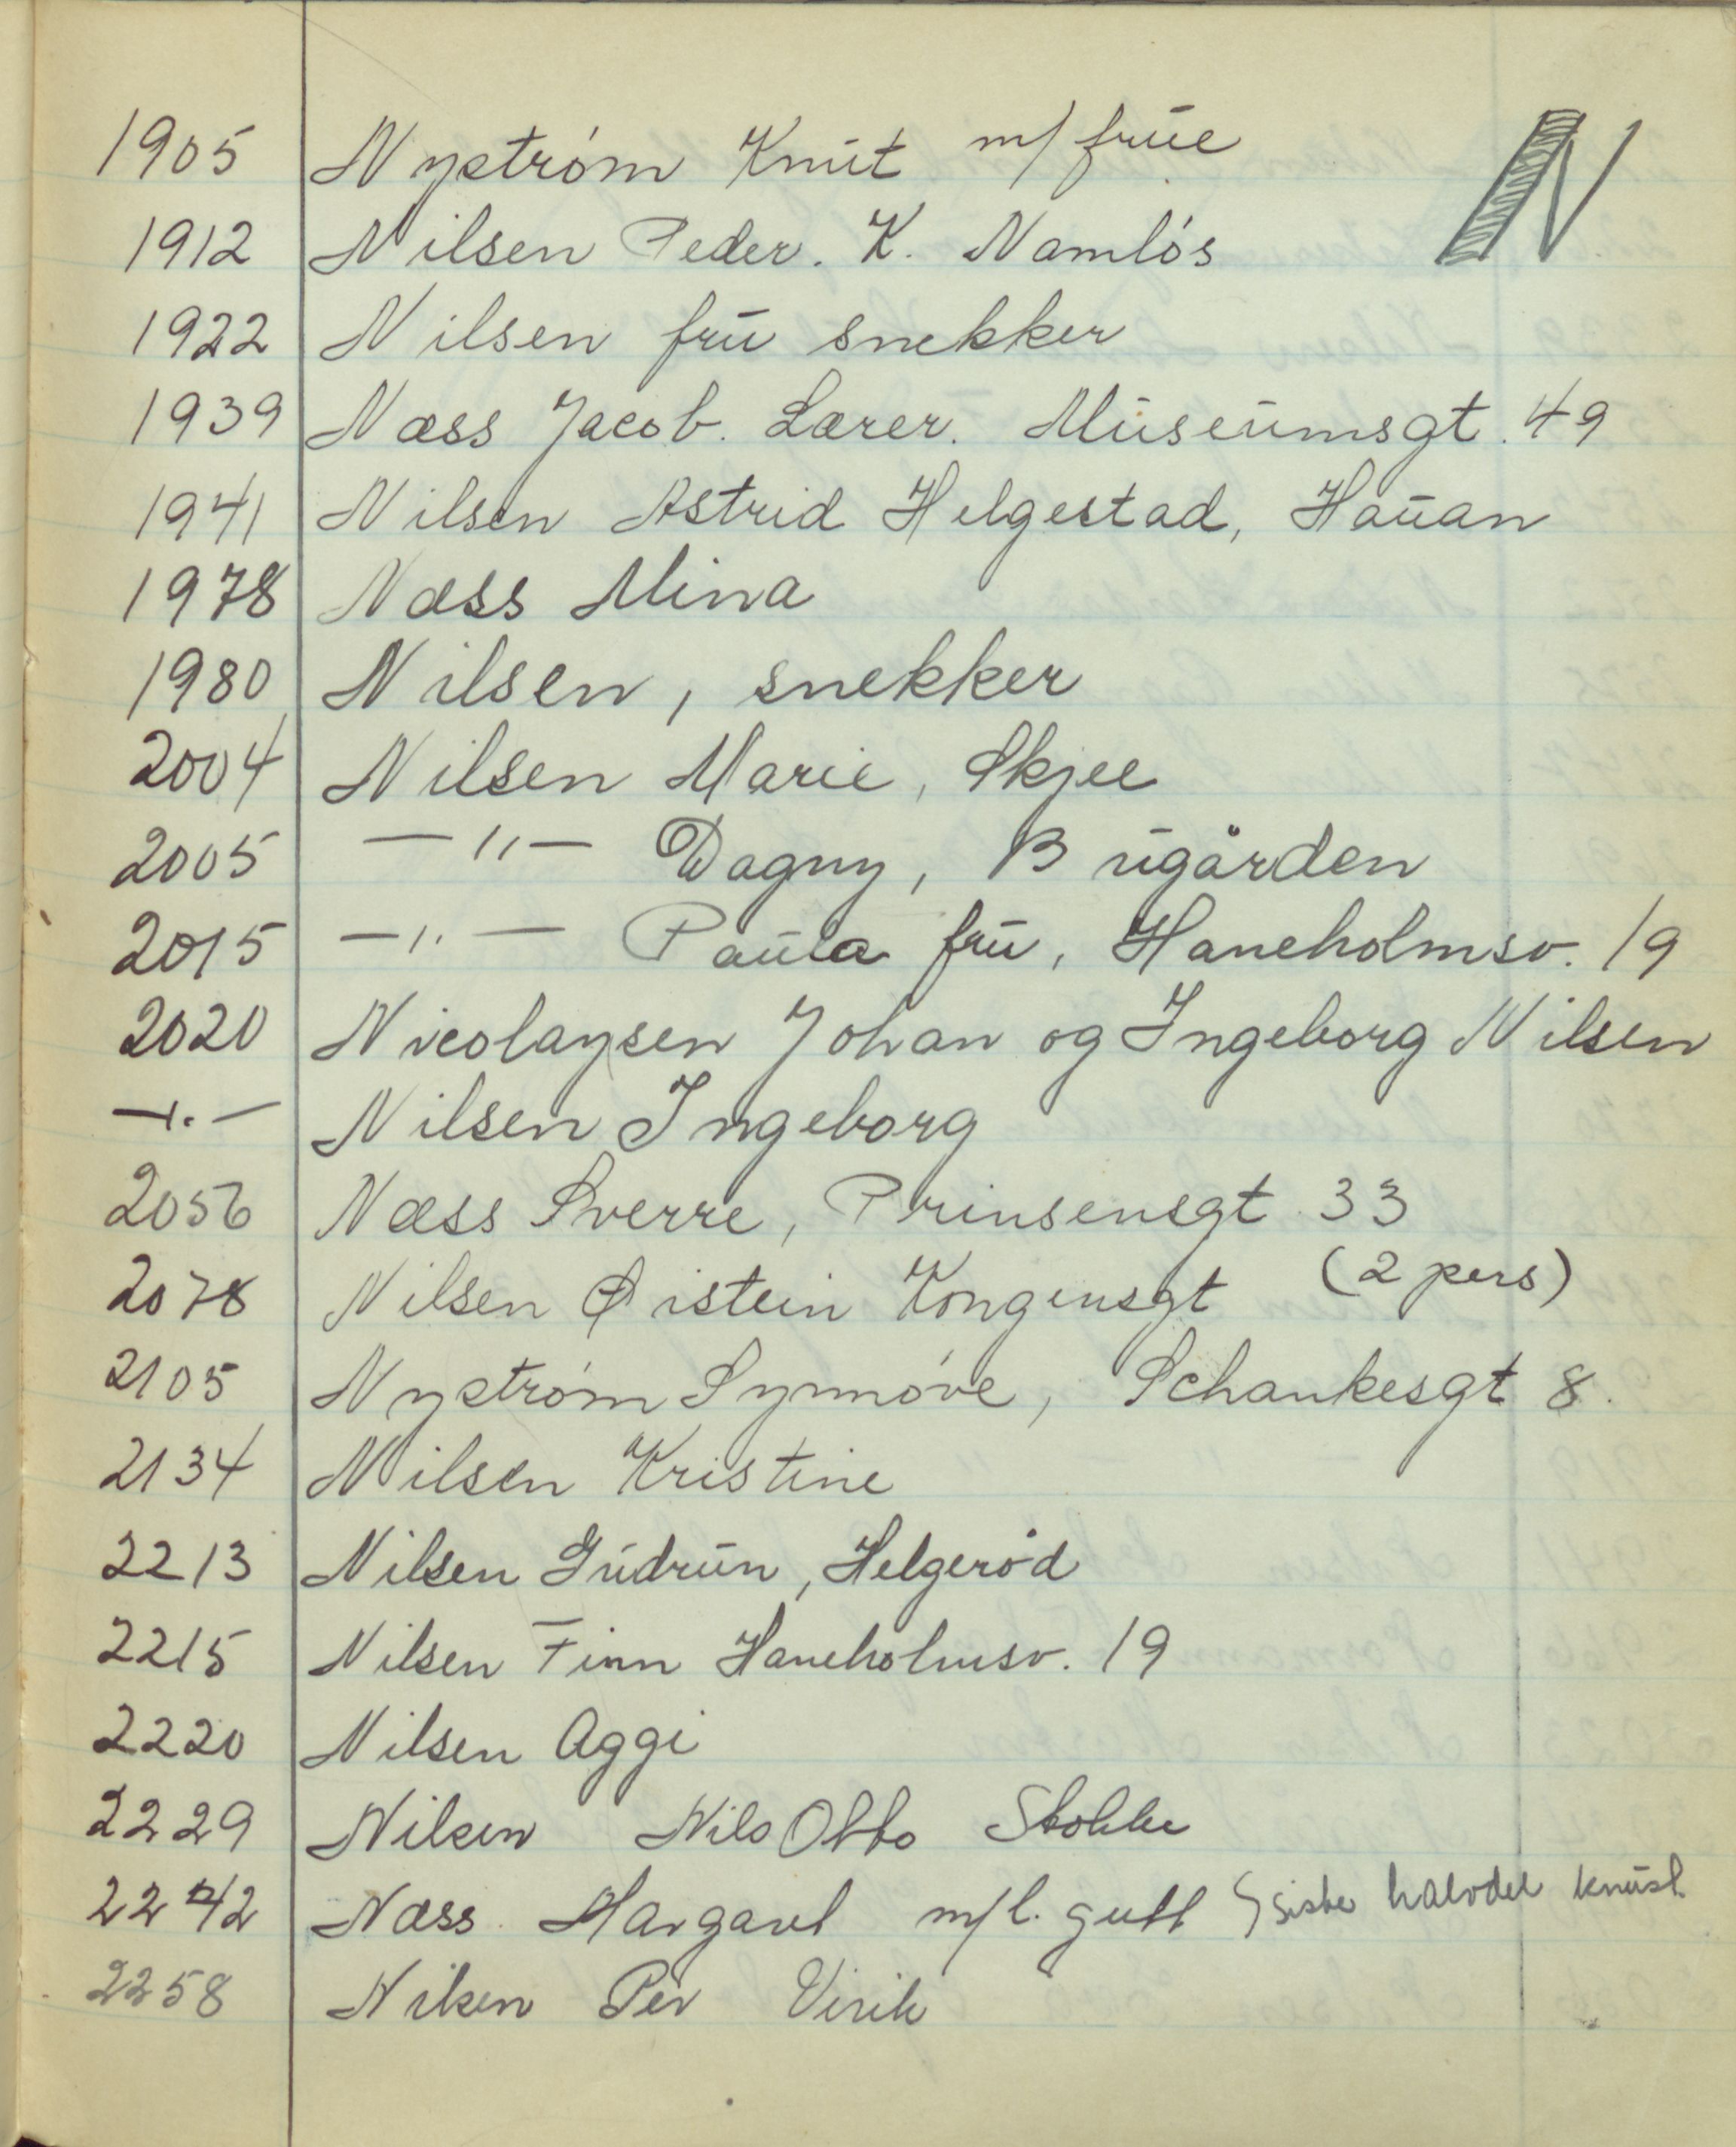 N
1905 Nyström Knut m/ frue
1912 Nilsen Peder. K. Namlós
1922 Nilsen fru snekker
1939 Næss Jacob. Lærer. Museumsgt. 49
1941 Nilsen Astrid Helgestad, Hauan
1978 Næss Mina
1980 Nilsen, snekker
2004 Nilsen Marie, Skjee
2005 —"— Dagny, Bugården
2015 —"— Paula fru, Haneholmsv. 19
2020 Nicolaysen Johan og Ingeborg Nilsen
—"— Nilsen Ingeborg
2056 Næss Sverre, Prinsensgt 33
2078 Nilsen Øistein Kongensgt (2 pers)
2105 Nyström Synnóve, Schankesgt 8.
2134 Nilsen Kristine
2213 Nilsen Gudrun, Helgeród
2215 Nilsen Finn Haneholmsv. 19
2220 Nilsen Aggi
2229 Nilsen Nils Otto
2242 Næss Margaret m/l. gutt siste halvdel knust
2258 Nilsen Per Virik